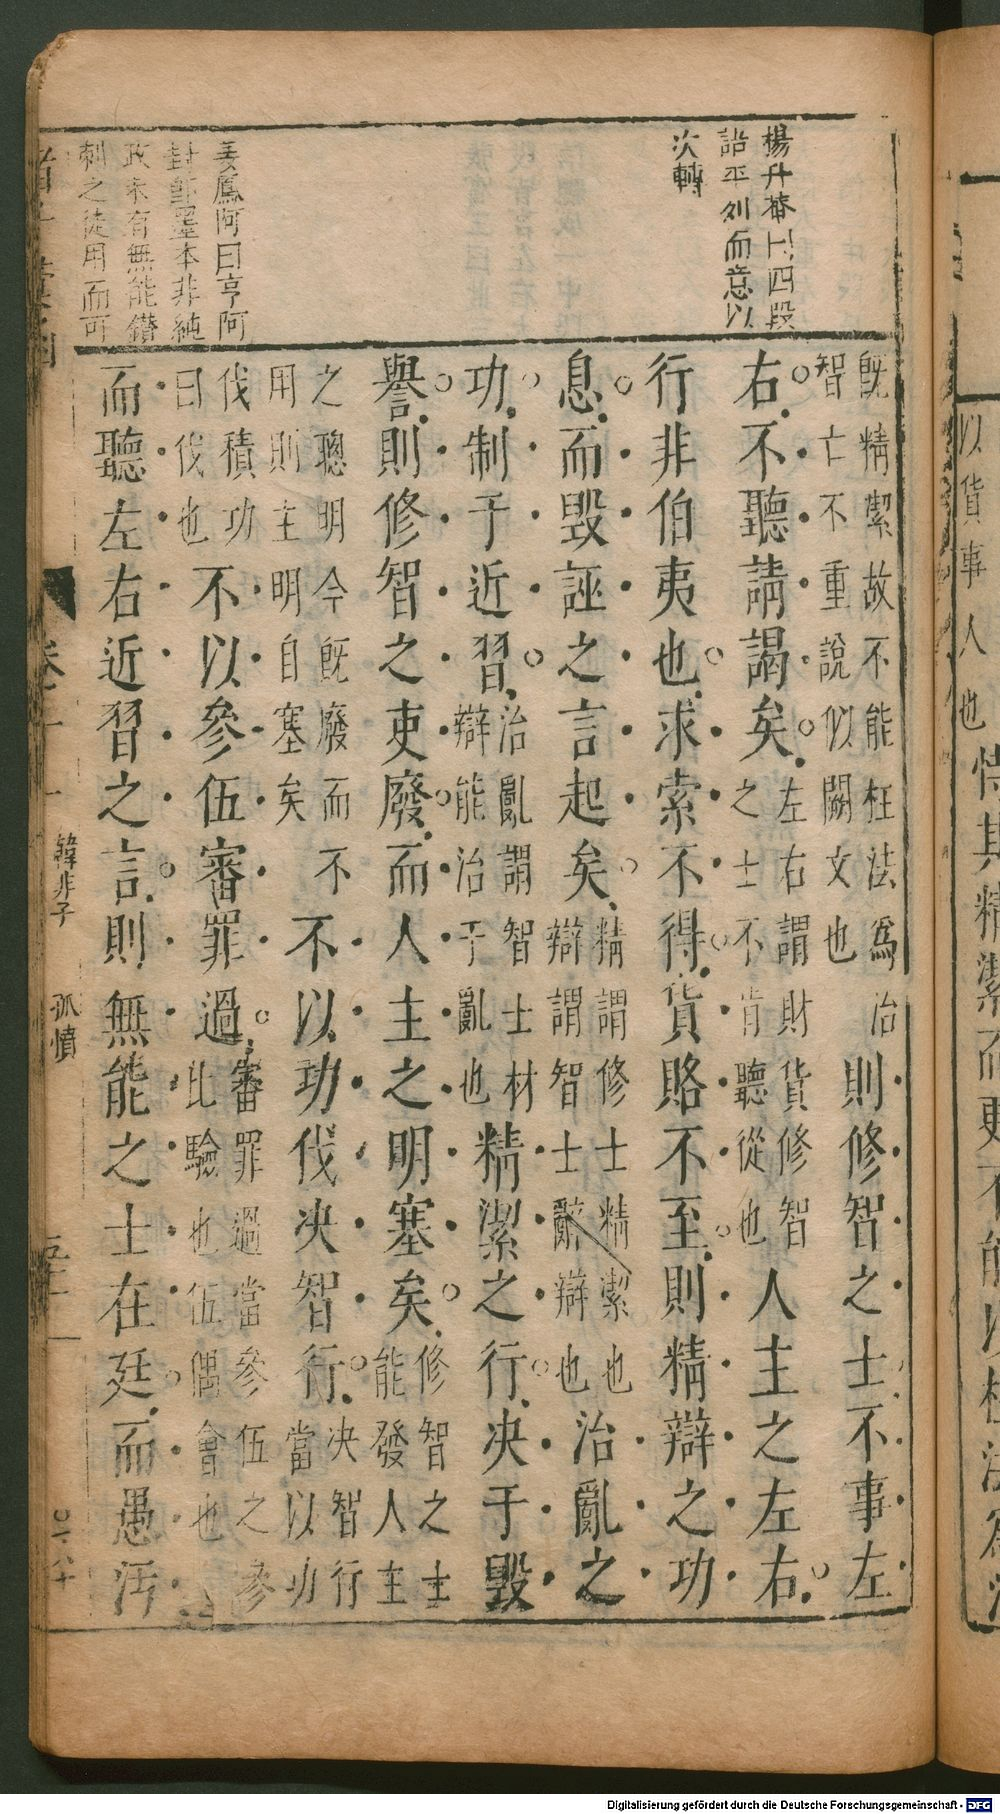 以貨事人也恃其精潔而更不能以枉法爲治
楊升菴曰四段
詔平列而意以
次轉
姜鳳阿曰亨阿
封即墨本非純
政未有無能鑽
刺之徒用而可
既精潔故不能枉法爲治
智亡不重說似闕文也
則修智之士不事左
右不聽請謁矣
左右謂財貨修智
之士不肯聽從也
人主之左右
行非伯夷也求索不得貨賂不至則精辯之功
息而毀誣之言起矣
精謂修士精潔也
辯謂智士辭辯也
治亂之
功制于近習
治亂謂智士材
辯能治于亂也
精潔之行決于毀
譽則修智之吏廢而人主之明塞矣
修智之士
能發人主
之聰明今既廢而不
用則主明自塞矣
不以功伐決智行
決智行
當以功
伐積功
曰伐也
不以參伍審罪過
審罪過當參伍之參
比驗也伍偶會也
而聽左右近習之言則無能之士在廷而愚汚
韓非子 孤憤
Digitalisierung gefördert durch die Deutsche Forschungsgemeinschaft - DFG